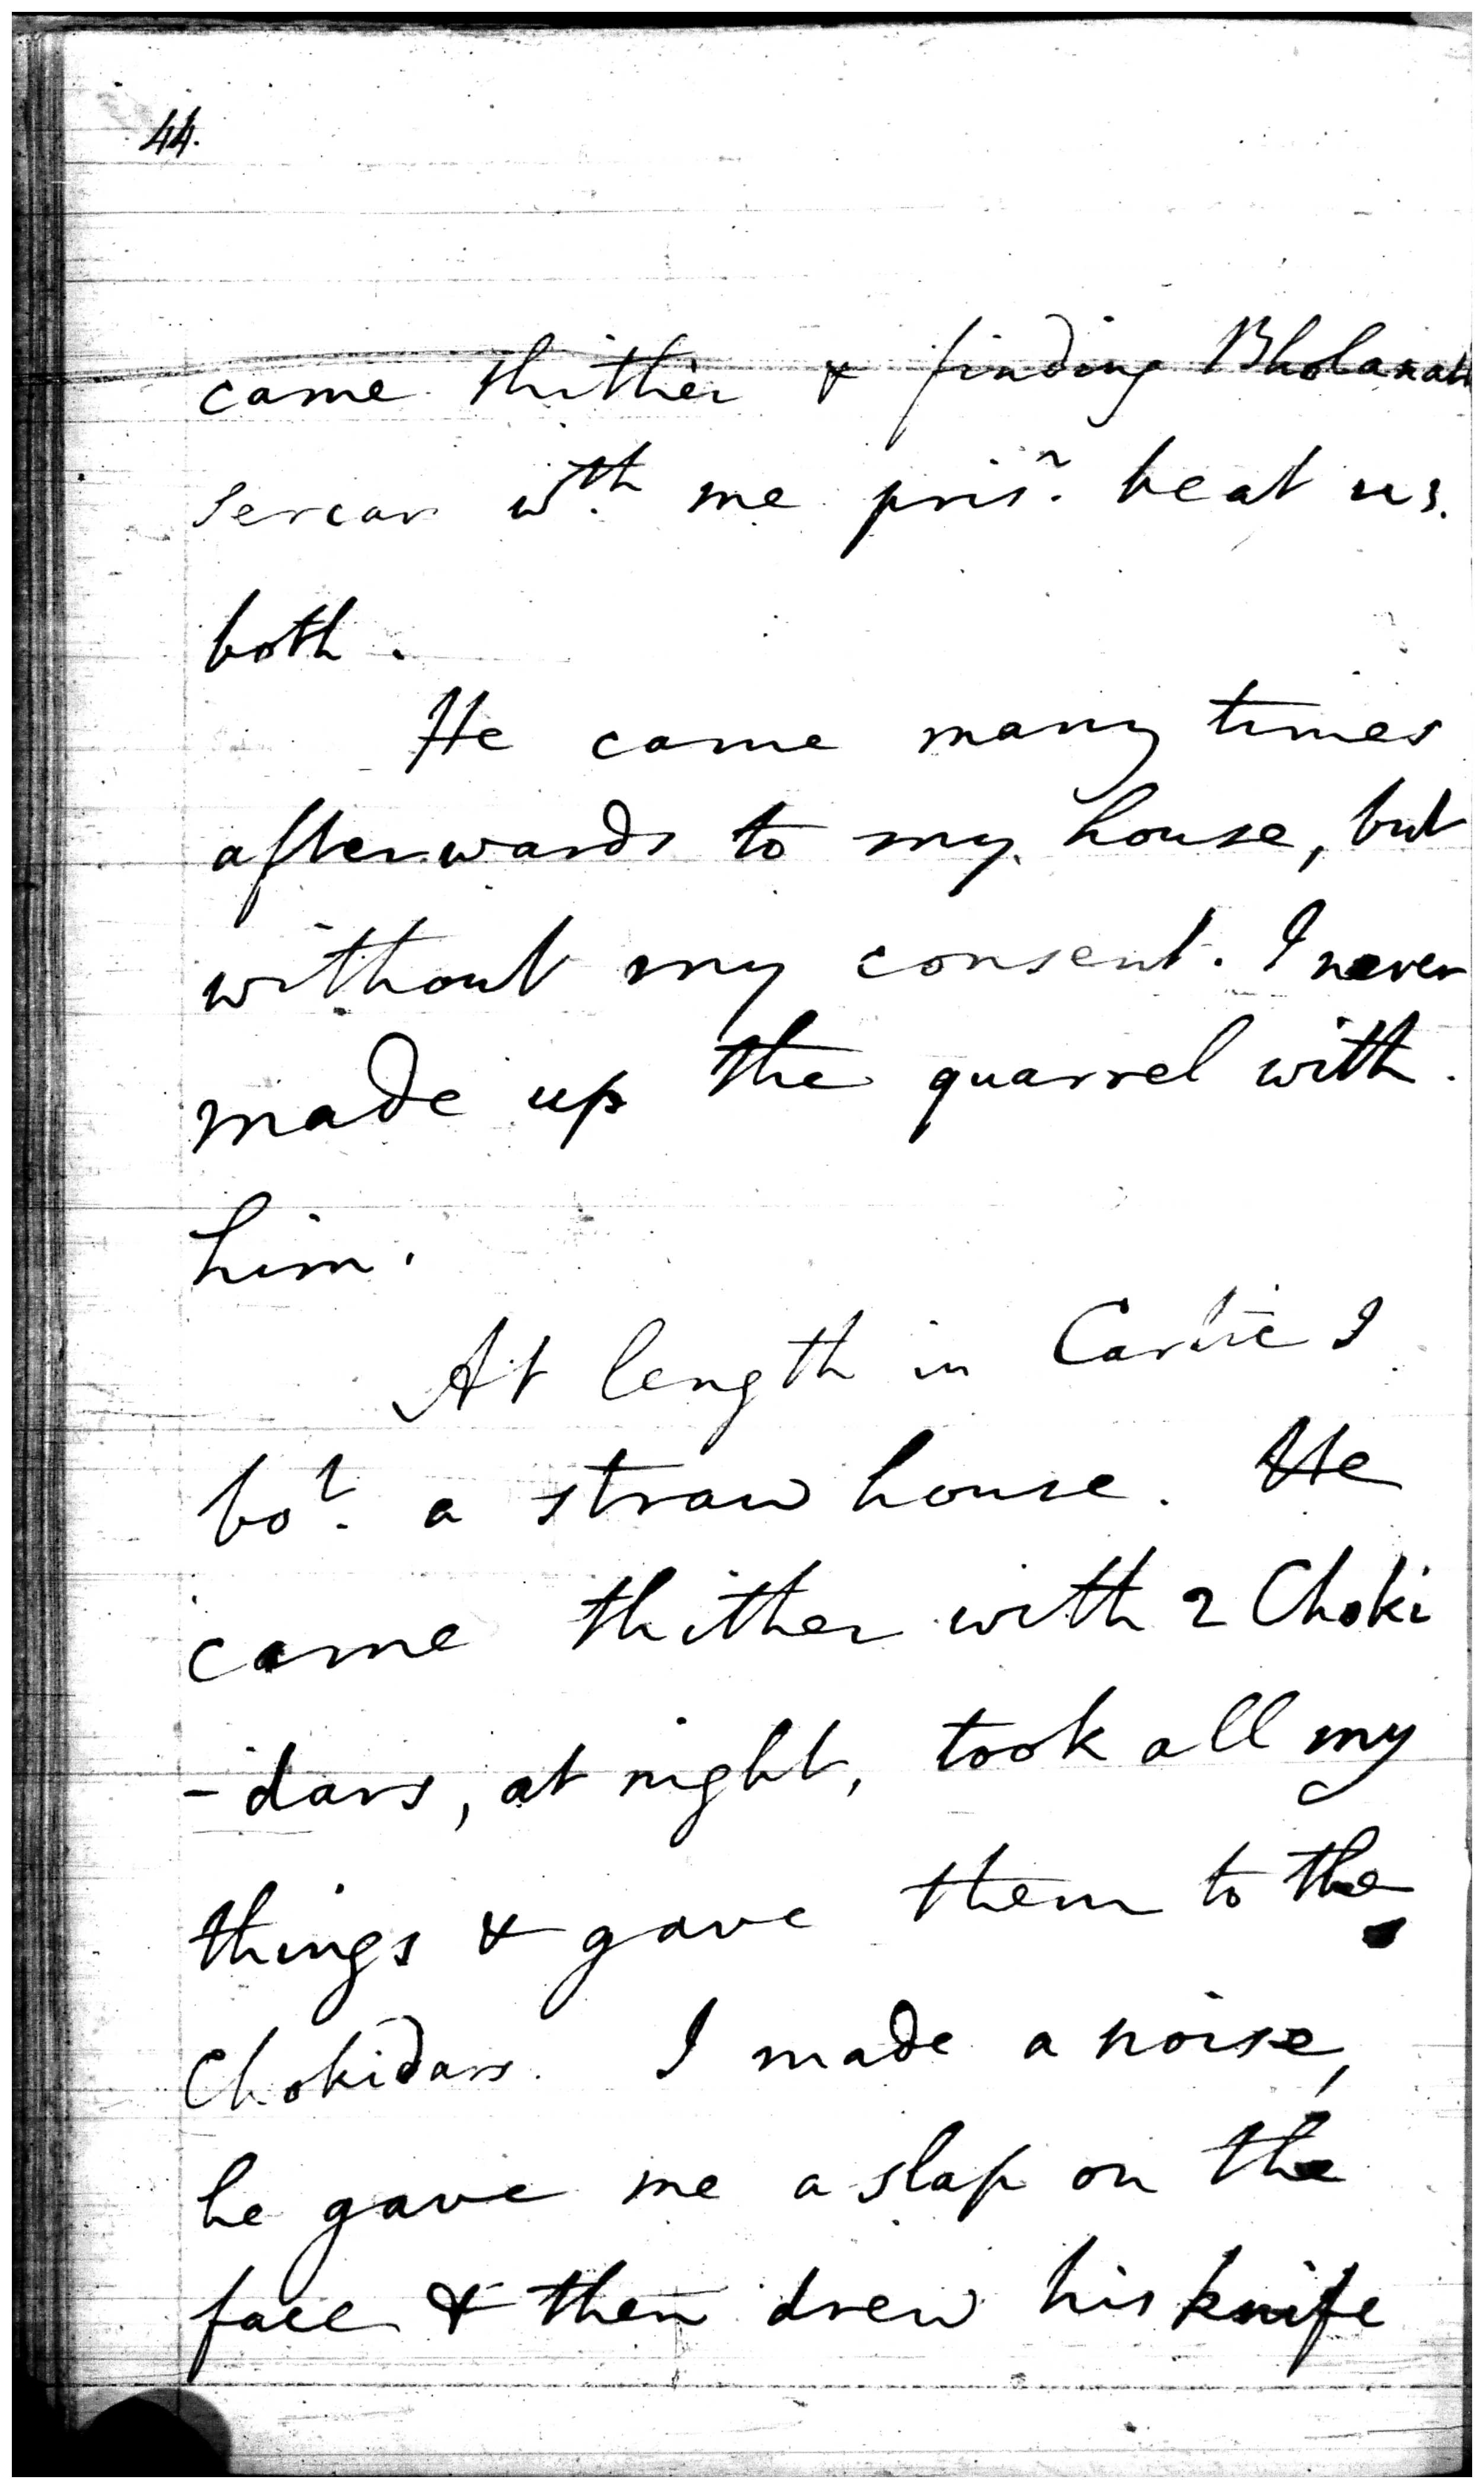 44.
came thither & finding Bholanath
Sercar wth. me prisr. beat us
both.
He came many times
afterwards to my house, but
without my consent. I never
made up the quarrel with
him.
At length in Cartic I
bot. a straw house. He
came thither with 2 Choki
-dars, at night, took all my
things & gave them to the
Chokidars. I made a noise,
he gave me a slap on the
face & then drew his knife